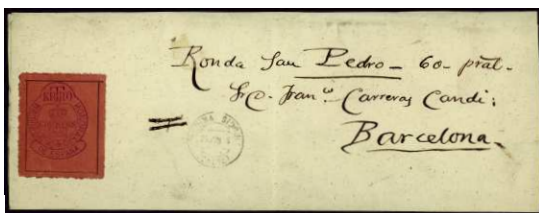 Ronda San Pedro - 60 - pral.
Sr. D. Fran.co Carreras Candi:
Barcelona.